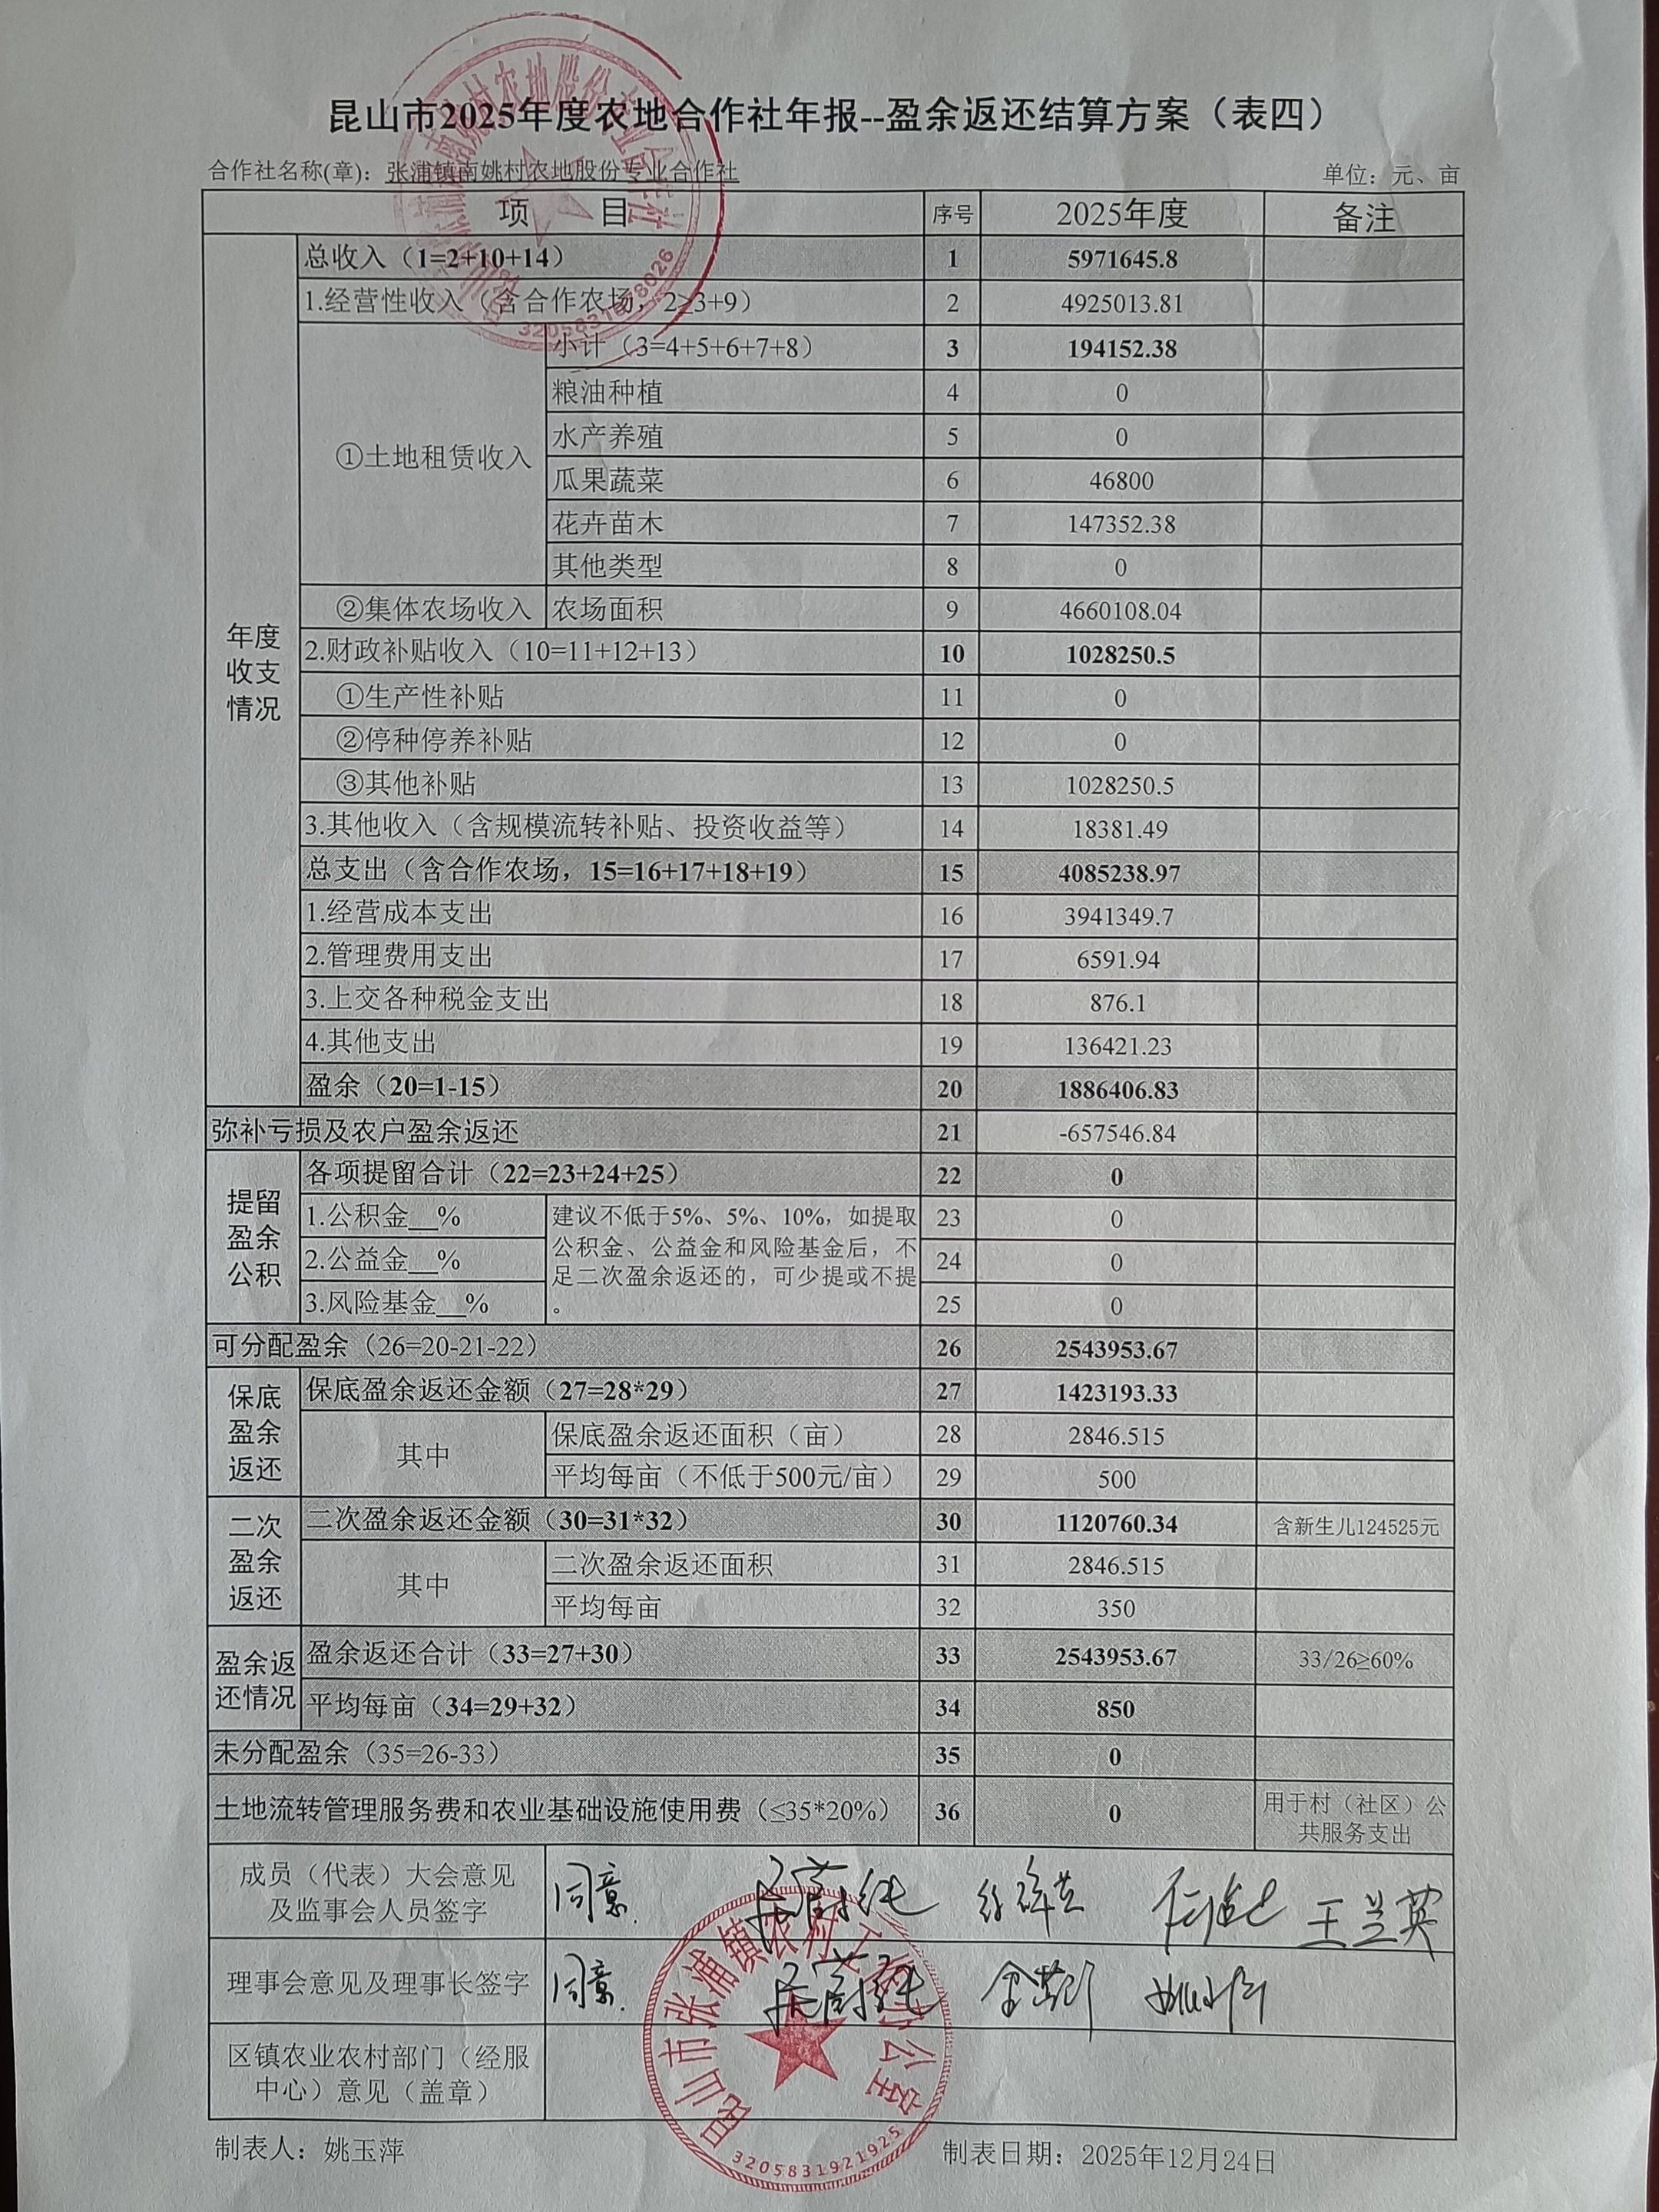 昆山市2025年度农地合作社年报--盈余返还结算方案（表四）
合作社名称(章)：张浦镇南姚村农地股份专业合作社 单位：元、亩
项 目 序号 2025年度 备注
年度收支情况
总收入（1=2+10+14） 1 5971645.8
1.经营性收入（含合作农场，2≥3+9） 2 4925013.81
①土地租赁收入
小计（3=4+5+6+7+8） 3 194152.38
粮油种植 4 0
水产养殖 5 0
瓜果蔬菜 6 46800
花卉苗木 7 147352.38
其他类型 8 0
②集体农场收入 农场面积 9 4660108.04
2.财政补贴收入（10=11+12+13） 10 1028250.5
①生产性补贴 11 0
②停种停养补贴 12 0
③其他补贴 13 1028250.5
3.其他收入（含规模流转补贴、投资收益等） 14 18381.49
总支出（含合作农场，15=16+17+18+19） 15 4085238.97
1.经营成本支出 16 3941349.7
2.管理费用支出 17 6591.94
3.上交各种税金支出 18 876.1
4.其他支出 19 136421.23
盈余（20=1-15） 20 1886406.83
弥补亏损及农户盈余返还 21 -657546.84
提留盈余公积
各项提留合计（22=23+24+25） 22 0
1.公积金__% 23 0
2.公益金__% 24 0
3.风险基金__% 25 0
建议不低于5%、5%、10%，如提取
公积金、公益金和风险基金后，不
足二次盈余返还的，可少提或不提
。
可分配盈余（26=20-21-22） 26 2543953.67
保底盈余返还
保底盈余返还金额（27=28*29） 27 1423193.33
其中
保底盈余返还面积（亩） 28 2846.515
平均每亩（不低于500元/亩） 29 500
二次盈余返还
二次盈余返还金额（30=31*32） 30 1120760.34 含新生儿124525元
其中
二次盈余返还面积 31 2846.515
平均每亩 32 350
盈余返还情况
盈余返还合计（33=27+30） 33 2543953.67 33/26≥60%
平均每亩（34=29+32） 34 850
未分配盈余（35=26-33） 35 0
土地流转管理服务费和农业基础设施使用费（≤35*20%） 36 0 用于村（社区）公共服务支出
成员（代表）大会意见
及监事会人员签字 同意. 王兰英
理事会意见及理事长签字 同意.
区镇农业农村部门（经服
中心）意见（盖章）
昆山市张浦镇农村
公室
3205831921925
制表人：姚玉萍 制表日期：2025年12月24日